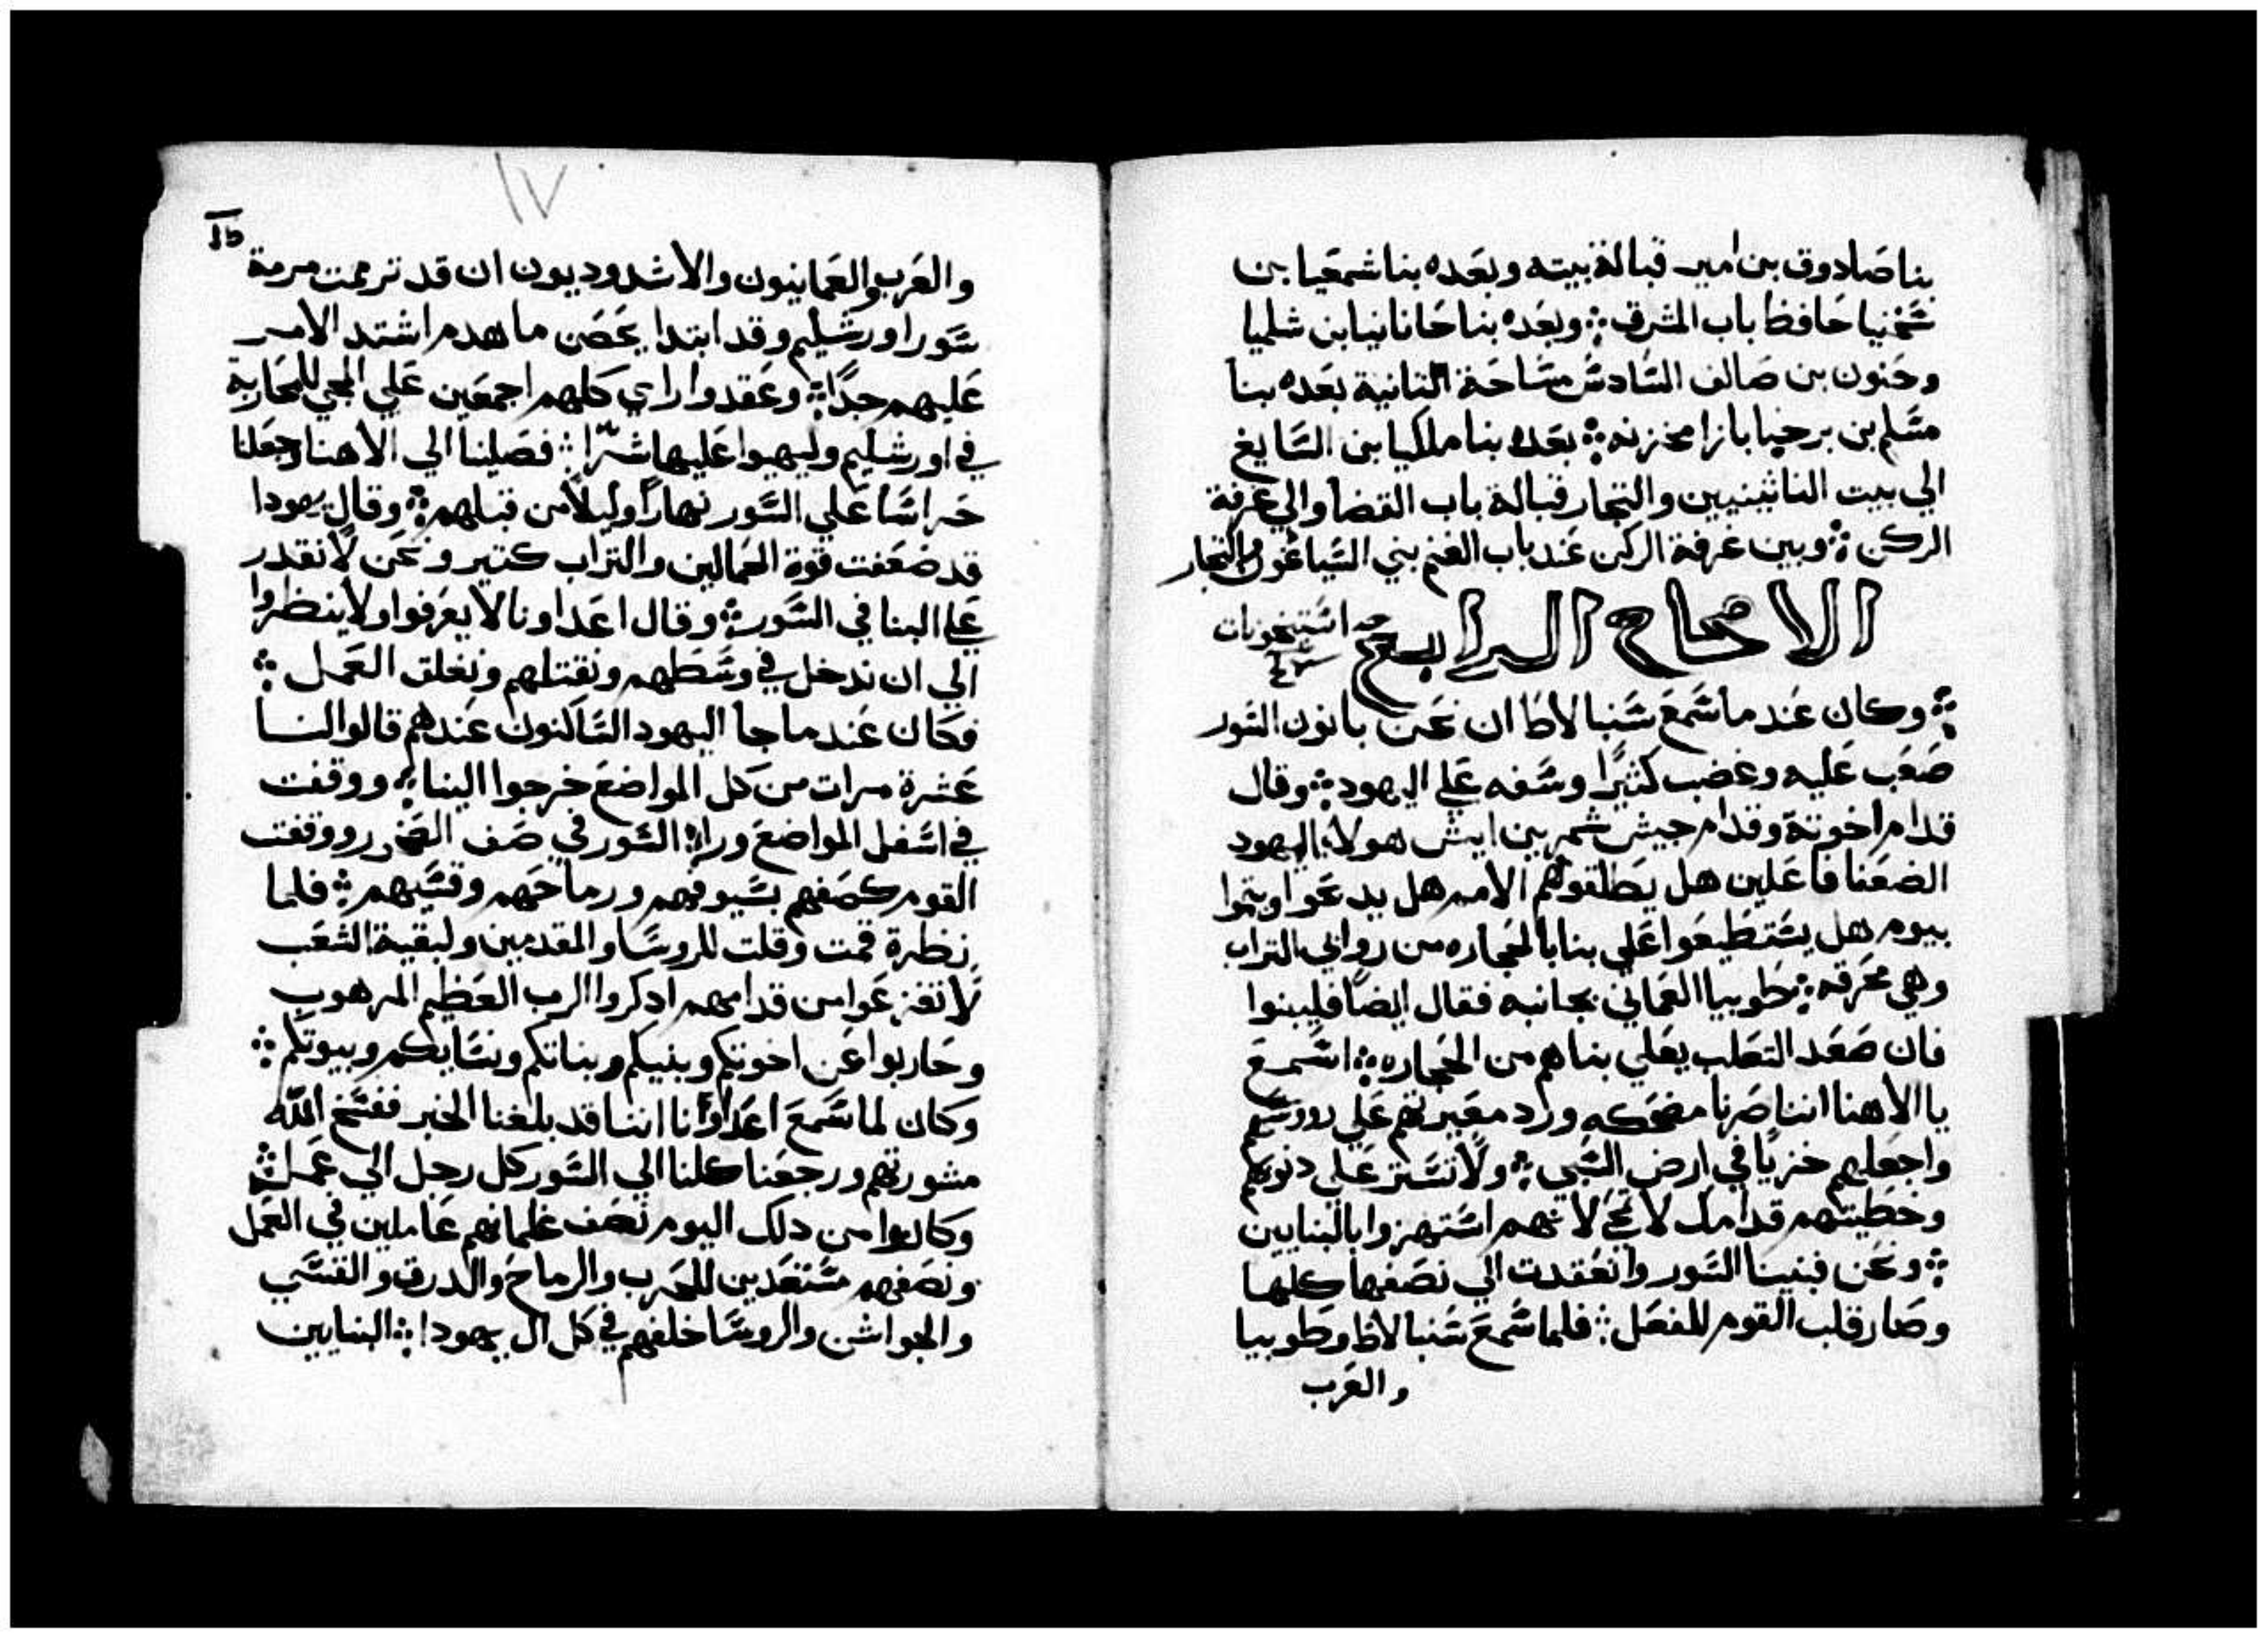 بنا صادوق بن امير قبالة بيته وبعده بنا شمعيا بن
شخنيا حافظ باب المشرق ⁘ وبعده بنا حانانيا بن شلميا
وحنون بن صالف السادس مساحة التانية بعده بنا
مسلم بن برخيا بازا مخزنه ⁘ بعده بنا ملكيا بن السايغ
الي بيت الناثينيين والتجار قبالة باب القضا والي غرفة
الركن ⁘ وبين غرفة الركن عند باب الغنم بني السياغون والتجار
الاصحاح الرابع
استيخونات
⁘ وكان عند ما سمع سنبالاط ان نحن بانون السور
صعب عليه وغضب كثيرًا وسفه علي اليهود ⁘ وقال
قدام اخوته وقدام جيش شمرين ايش هولا اليهود
الضعفا فاعلين هل يطلقوهم الامم هل يدبحوا ويتموا
بيوم هل يستطيعوا علي بنا بالحجاره من روابي التراب
وهي محرقه ⁘ طوبيا العماني بجانبه فقال ايضًا فليبنوا
فان صعد التعلب يعلي بناهم من الحجاره ⁘ اسمع
يا الاهنا اننا صرنا مضحكه ورد معيرتهم علي رووسهم
واجعلهم خزيًا في ارض السبي ⁘ ولا تستر علي دنوبهم
وخطيتهم قدامك لا تمحي لانهم استهزوا بالبنايين
⁘ ونحن فبنينا السور وانعقدت الي نصفها كلها
وصار قلب القوم للفعل ⁘ فلما سمع سنبالاط وطوبيا
والعرب
١٧
والعرب والعمانيون والاشدوديون ان قد ترممت مرمة
سور اورشليم وقد ابتدا يحصن ما هدم اشتد الامر
عليهم جدًا ⁘ وعقدوا راي كلهم اجمعين علي المجي للمحاربة
في اورشليم وليهيوا عليها شرًا ⁘ فصلينا الي الاهنا وجعلنا
حراسًا علي السور نهارًا وليلًا من قبلهم ⁘ وقال يهودا
قد ضعفت قوة الحمالين والتراب كتير ونحن لا نقدر
علي البنا في السور ⁘ وقال اعداونا لا يعرفوا ولا ينظروا
الي ان ندخل في وسطهم ونقتلهم ونغلق العمل ⁘
فكان عند ما جا اليهود الساكنون عندهم قالوا لنا
عشرة مرات من كل المواضع خرجوا الينا ⁘ ووقفت
في اسفل المواضع وراء السور في صف ووقفت
القوم كصفهم بسيوفهم ورماحهم وقسيهم ⁘ فلما
نظرة قمت وقلت للروسا والمقدمين ولبقية الشعب
لا تفزعوا من قدامهم ادكروا الرب العظيم المرهوب
وحاربوا عن اخوتكم وبنيكم وبناتكم ونسايكم وبيوتكم ⁘
وكان لما سمع اعداؤنا اننا قد بلغنا الخبر ففسخ الله
مشورتهم ورجعنا كلنا الي السور كل رجل الي عمله ⁘
وكانوا من دلك اليوم نصف غلمانهم عاملين في العمل
ونصفهم مستعدين للحرب والرماح والدرق والقسي
والجواشن والروسا خلفهم في كل ال يهودا ⁘ البنايين